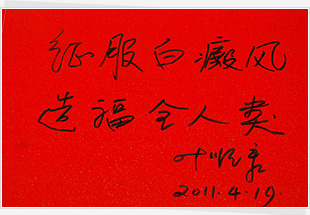 征服白癜风
造福全人类
叶顺章
2011.4.19.